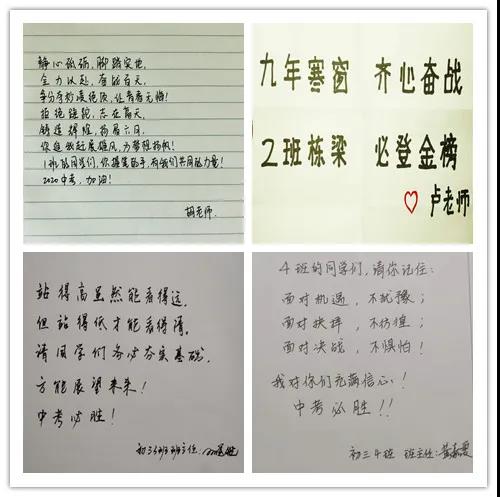 静心砥砺，脚踏实地，
全力以赴，奋战百天，
争分夺秒凌绝顶，让青春无悔！
拍绝骄陀，志在高天，
铸造辉煌，扬眉六月，
你追我赶展雄风，为梦想扬帆！
1班的同学们，你携笔的手，有我们共同的力量！
2020中考，加油！
胡老师
九年寒窗 齐心奋战
2班栋梁 必登金榜
♡卢老师
站得高虽然能看得远，
但站得低才能看得清。
请同学们务必夯实基础，
方能展望未来！
中考必胜！
初三3班班主任：
4班的同学们，请你记住：
面对机遇，不犹豫；
面对抉择，不彷徨；
面对决战，不惧怕！
我对你们充满信心！
中考必胜！！
初三4班 班主任：